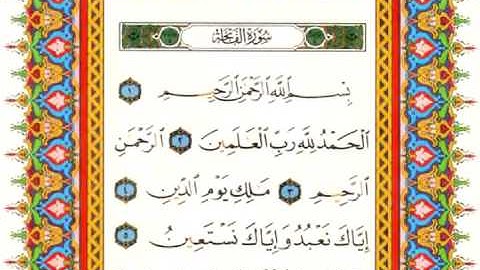 سُورَةُ الفَاتِحَةِ
بِسْمِ ٱللَّهِ ٱلرَّحْمَٰنِ ٱلرَّحِيمِ ١
ٱلْحَمْدُ لِلَّهِ رَبِّ ٱلْعَٰلَمِينَ ٢ ٱلرَّحْمَٰنِ
ٱلرَّحِيمِ ٣ مَٰلِكِ يَوْمِ ٱلدِّينِ ٤
إِيَّاكَ نَعْبُدُ وَإِيَّاكَ نَسْتَعِينُ ٥